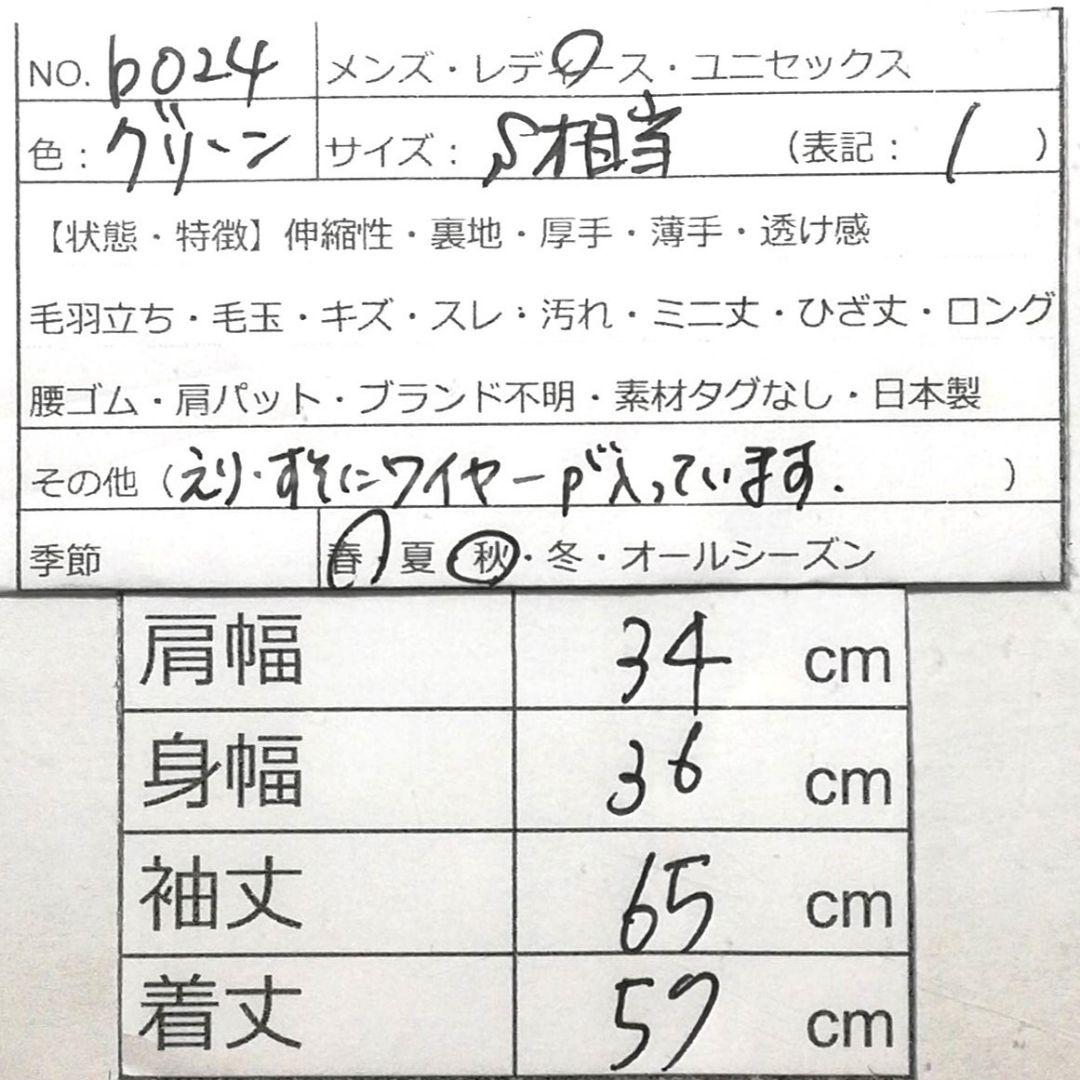 NO. b024 メンズ・レディース・ユニセックス
色： グリーン サイズ： S相当 （表記： 1 ）
【状態・特徴】伸縮性・裏地・厚手・薄手・透け感
毛羽立ち・毛玉・キズ・スレ・汚れ・ミニ丈・ひざ丈・ロング
腰ゴム・肩パット・ブランド不明・素材タグなし・日本製
その他（えり・すそにワイヤーが入っています. ）
季節 春・夏・秋・冬・オールシーズン
肩幅 34 cm
身幅 36 cm
袖丈 65 cm
着丈 57 cm